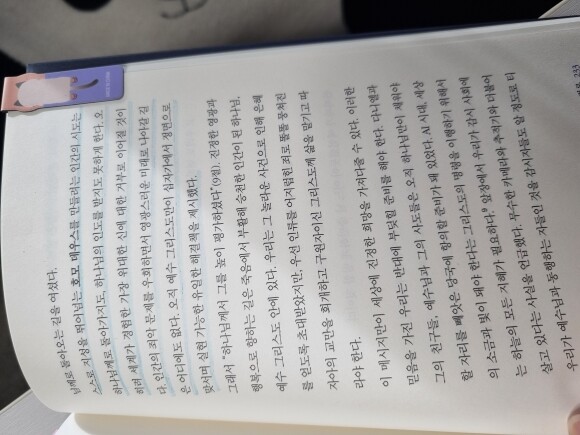 님께로 돌아오는 길을 여셨다.
스스로 지성을 뛰어넘는 호모 데우스를 만들려는 인간의 시도는
하나님께로 돌아가지도, 하나님의 인도를 받지도 못하게 한다. 오
히려 세계가 경험한 가장 위대한 신에 대한 거부로 이어질 것이
다. 인간의 죄악 문제를 우회하면서 영광스러운 미래로 나아갈 길
은 어디에도 없다. 오직 예수 그리스도만이 십자가에서 정면으로
맞서며 실현 가능한 유일한 해결책을 제시했다.
그래서 “하나님께서 그를 높이 평가하셨다”(9절). 진정한 영광과
행복으로 향하는 길은 죽음에서 부활해 승천한 인간이 된 하나님,
예수 그리스도 안에 있다. 우리는 그 놀라운 사건으로 인해 은혜
를 얻도록 초대받았지만, 우선 인류를 어지럽힌 죄로 똘똘 뭉쳐진
자아의 교만을 회개하고 구원자이신 그리스도께 삶을 맡기고 따
라야 한다.
이 메시지만이 세상에 진정한 희망을 가져다줄 수 있다. 이러한
믿음을 가진 우리는 반대에 부딪힐 준비를 해야 한다. 다니엘과
그의 친구들, 예수님과 그의 사도들은 오직 하나님만이 채워야
할 자리를 빼앗은 당국에 항의할 준비가 돼 있었다. AI 시대, 세상
의 소금과 빛이 돼야 한다는 그리스도의 명령을 이행하기 위해서
는 하늘의 모든 지혜가 필요하다. 앞장에서 우리가 감시 사회에
살고 있다는 사실을 언급했다. 무수한 카메라와 추적기와 더불어
우리가 예수님과 동행하는 자들인 것을 감시자들도 알 정도로 티
233